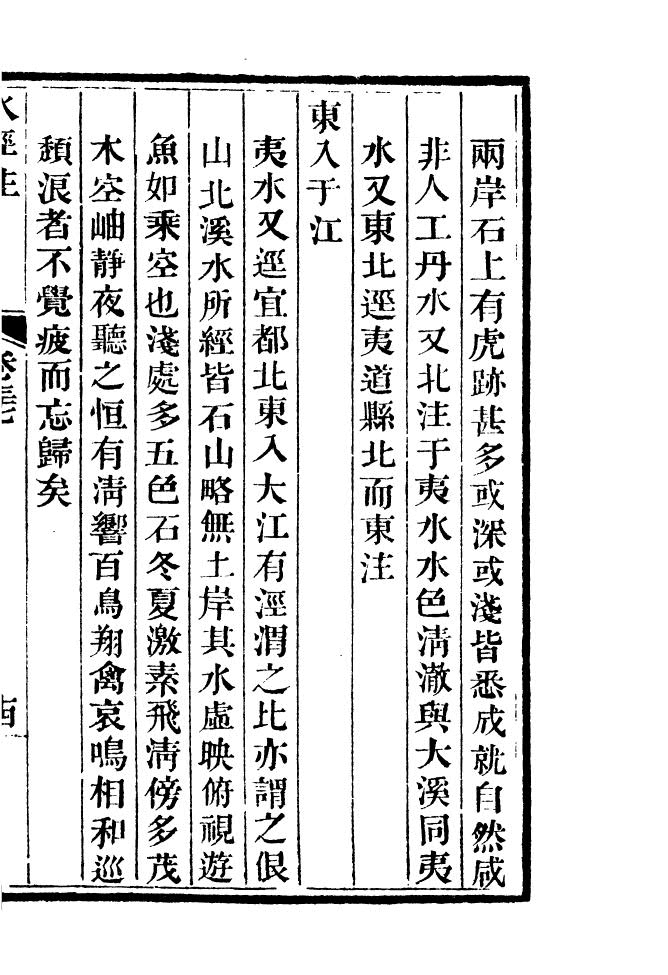 兩岸石上有虎跡甚多或深或淺皆悉成就自然咸
非人工丹水又北注于夷水水色清澈與大溪同夷
水又東北逕夷道縣北而東注
東入于江
夷水又逕宜都北東入大江有涇渭之比亦謂之佷
山北溪水所經皆石山略無土岸其水虛映俯視遊
魚如乘空也淺處多五色石冬夏激素飛清傍多茂
木空岫靜夜聽之恒有清響百鳥翔禽哀鳴相和巡
頹浪者不覺疲而忘歸矣
水經注
卷三七